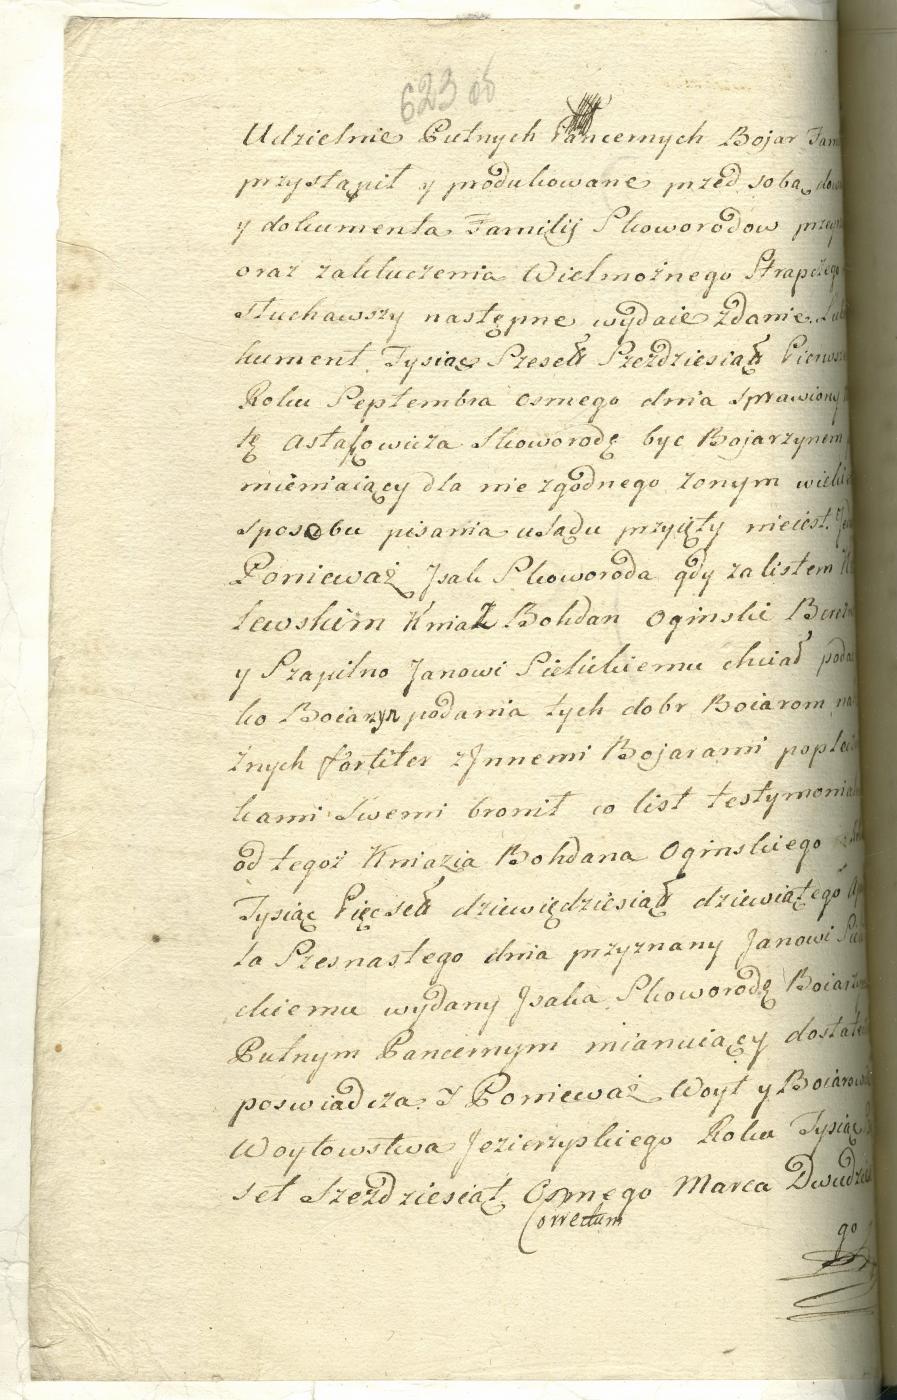 623 об
Udzielnie Putnych Pancernych Bojar
przystąpił y produkowane przed sobą
y dokumenta Familij Skoworodow
oraz zakluczenia Wielmożnego Strapczego
słuchawszy następne wydaie zdanie.
kument Tysiąc Szesett Szezdziesiątt
Roku Septembra osmego dnia sprawiony
Astafowicza Skoworodę byc Bojarzynem
mieniaiący dla nie zgodnego z onym
sposobu pisania usądu przyięty nieiest.
Ponieważ Jsak Skoworoda gdy za listem
lewskim Kniaz Bohdan Oginski
y Szapilno Janowi Sielickiemu chciał
ko Boiarzyn podania tych dobr Boiarom
żnych fortiter z Jnnemi Bojarami
kami Swemi bronił co list
od tegoż Kniazia Bohdana Oginskiego
Tysiąc Pięcsett dziewiędziesiątt dziewiątego
la Szesnastego dnia przyznany Janowi
ckiemu wydany Jsaka Skoworodę
Putnym Pancernym mianuiący
poswiadcza. I Ponieważ Woyt y
Woytowstwa Jezierzyskiego Roku Tysiąc
set Szezdziesiąt Osmego Marca
Correctum
go